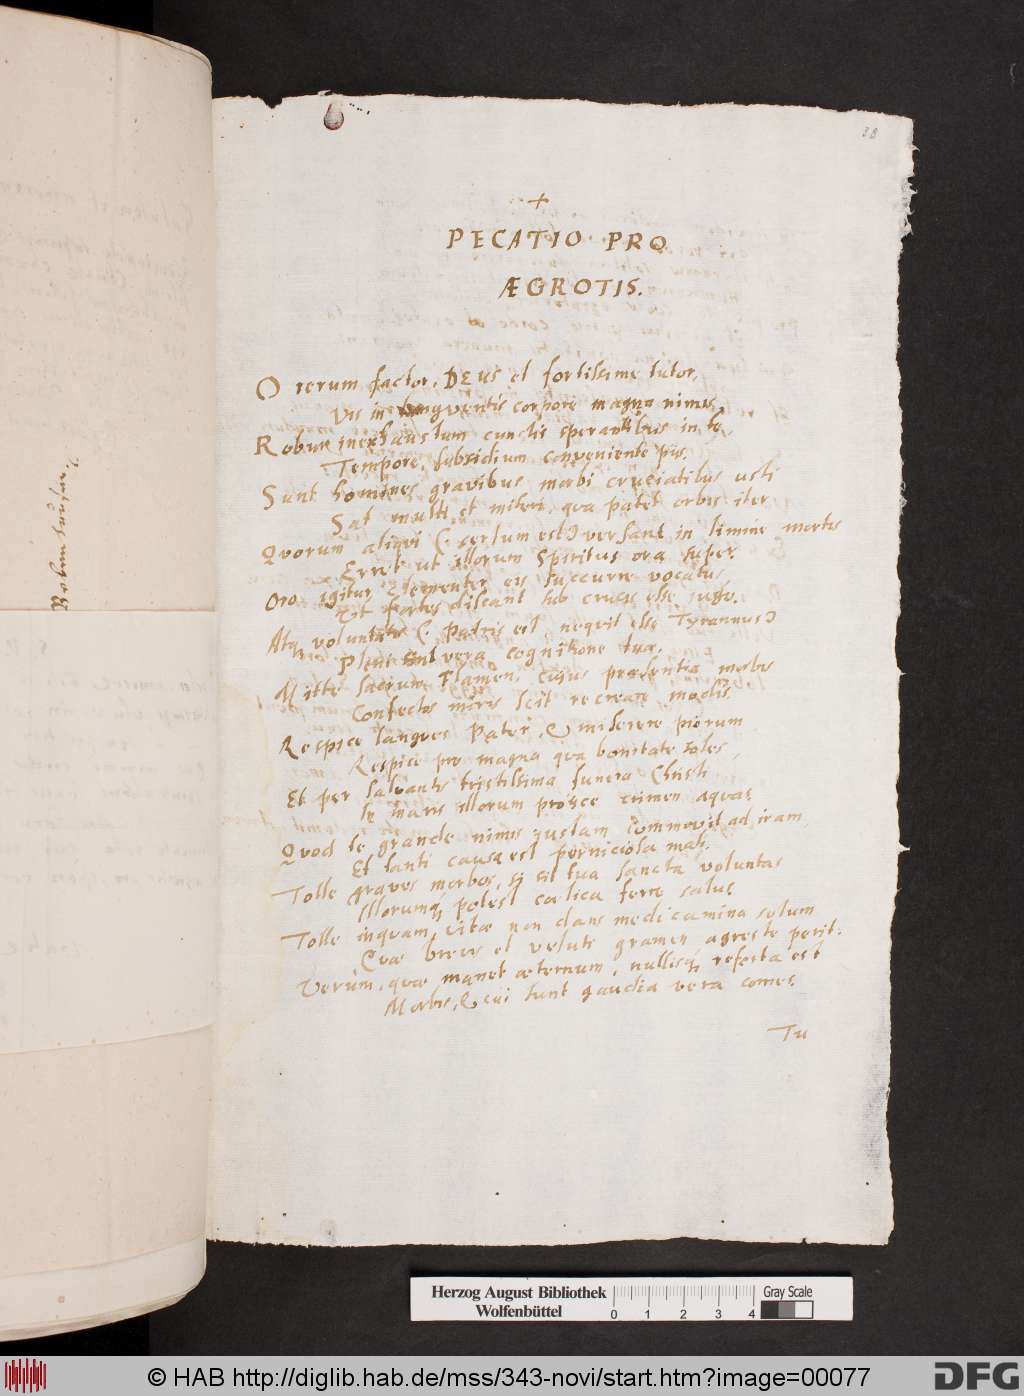 38
+
PECATIO PRO
ÆGROTIS.
O rerum factor, DEus et fortissime tutor,
Vis in languentis corpore magna nimis,
Robur inexhaustum cunctis sperantibus in te,
Tempore, subsidium conveniente pijs.
Sunt homines gravibus morbi cruciatibus usti
Sat multi et miseri, qua patet orbis iter
Quorum aliqui (: certum est:) versant in limine mortis
Erret ut illorum Spiritus ora super.
Oro igitur clementer eis succurre vocatus,
Ut fortes discant sub crucis esse jugo.
Atq voluntatis (: Patris est, nequit esse Tyrannus:)
Pleni sint vera cognitione tuæ.
Mitte sacrum Flamen, cujus præsentia morbis
Confectos miris scit recreare modis.
Respice languores Pater, & miserere piorum
Respice pro magna qua bonitate soles,
Et per salvantis tristissima funera Christi
In maris illorum proijce crimen aquas.
Quod te grande nimis justam commovit ad iram
Et tanti causa est perniciosa mali.
Tolle graves morbos, si sit tua sancta voluntas
Illorumq potest cælica ferre salus
Tolle inquam, vitæ non dans medicamina solum
Quæ brevis et veluti gramen agreste perit:
Verùm, quæ manet æternum, nullisq refecta est
Morbis, & cui sunt gaudia vera comes.
Tu
Herzog August Bibliothek
Wolfenbüttel
0 1 2 3 4
Gray Scale
© HAB http://diglib.hab.de/mss/343-novi/start.htm?image=00077
DFG